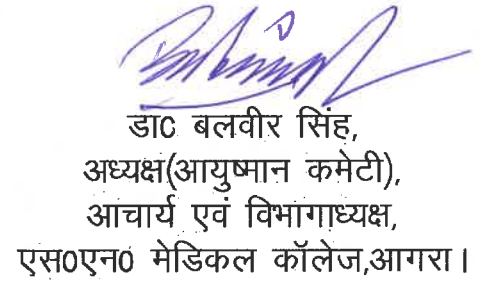 डा0 बलवीर सिंह,
अध्यक्ष(आयुष्मान कमेटी),
आचार्य एवं विभागाध्यक्ष,
एस0एन0 मेडिकल कॉलेज,आगरा।